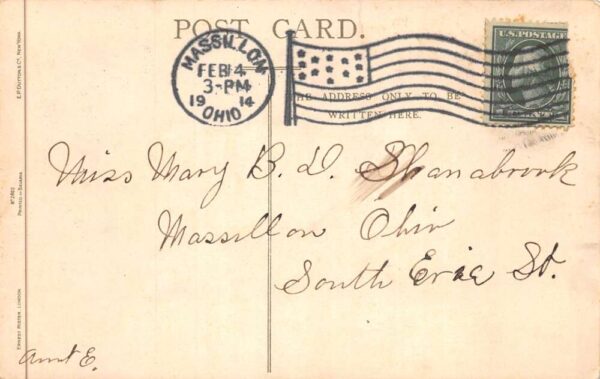 POST CARD.
MASSILLON
FEB 14
3-PM
1914
OHIO
U.S. POSTAGE
THE ADDRESS ONLY TO BE
WRITTEN HERE.
Miss Mary B. D. Shanabrook
Massillon Ohio
South Erie St.
Aunt E.
E.P. DUTTON & Co. NEW YORK.
PRINTED IN BAVARIA
ERNEST NISTER, LONDON